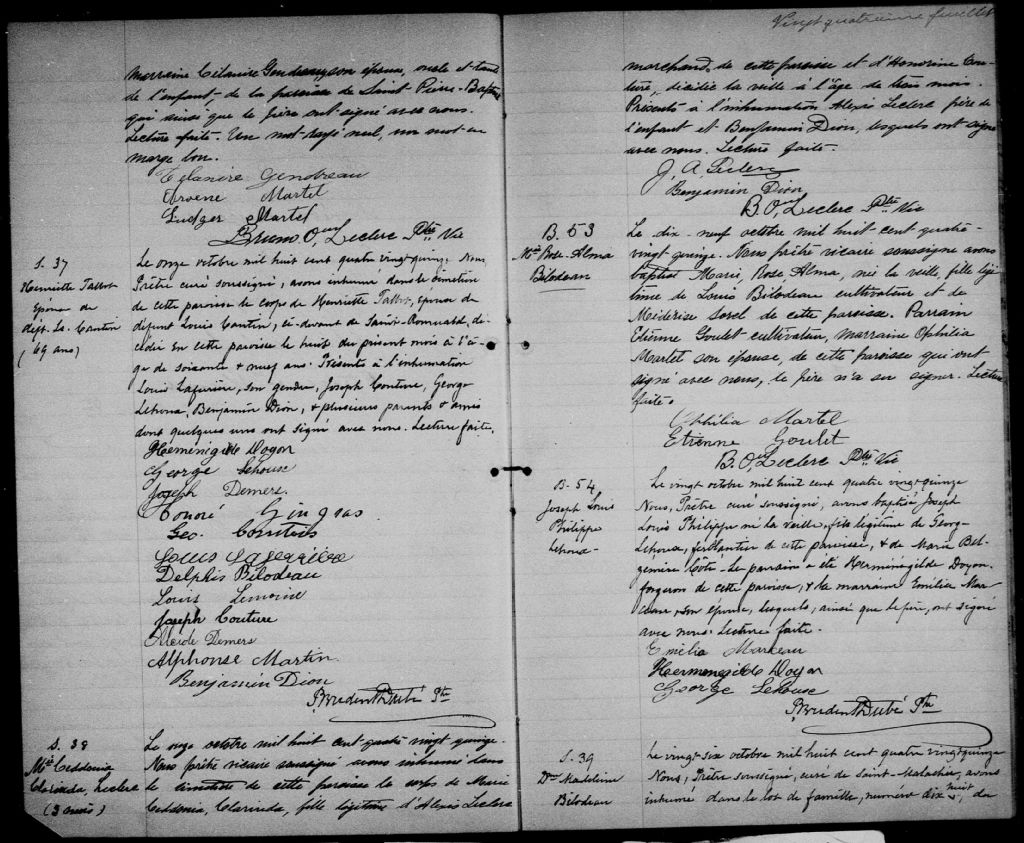 marraine Célanire Gendreau, son épouse, oncle et tante
de l'enfant, de la paroisse de Saint-Pierre-Baptiste
qui ainsi que le père ont signé avec nous.
Lecture faite. Un mot rayé nul, un mot en
marge bon.
Célanire Gendreau
Arvene Martel
Ludger Martel
Bruno O. Leclerc Ptre Vic
S. 37
Henriette Talbot
Épouse de
déft. Ls. Cantin
(69 ans)
Le onze octobre mil huit cent quatre vingt quinze Nous
Prêtre curé soussigné, avons inhumé dans le cimetière
de cette paroisse le corps de Henriette Talbot, épouse de
défunt Louis Cantin, ci-devant de Saint-Romuald, dé-
cédée en cette paroisse le huit du présent mois à l'â-
ge de soixante & neuf ans. Présents à l'inhumation
Louis Laferrière, son gendre, Joseph Couture, George
Lehoux, Benjamin Dion, & plusieurs parents & amis
dont quelques uns ont signé avec nous. Lecture faite.
Herménégilde Doyon
George Lehoux
Joseph Demers.
Honoré Gingras
Geo.
Louis Laferrière
Delphis Bilodeau
Louis Lemoine
Joseph Couture
Alcide Demers
Alphonse Martin
Benjamin Dion
Prudent Dubé Ptre
S. 38
Mie Ceddonia
Clarinda, Leclerc
(3 mois)
Le onze octobre mil huit cent quatre vingt quinze.
Nous prêtre vicaire soussigné avons inhumé dans
le cimetière de cette paroisse le corps de Marie
Ceddonia, Clarinda, fille légitime d'Alexis Leclerc
Vingt quatrième feuillet
marchand, de cette paroisse et d'Honorine Cou-
ture, décédée la veille à l'âge de trois mois.
Présents à l'inhumation Alexis Leclerc père de
l'enfant et Benjamin Dion, lesquels ont signé
avec nous. Lecture faite.
J. A. Leclerc
Benjamin Dion
B. O. Leclerc Ptre Vic
B. 53
Mie Rose-Alma
Bilodeau
Le dix-neuf octobre mil huit cent quatre-
vingt quinze. Nous prêtre vicaire soussigné avons
baptisé Marie, Rose Alma, née la veille, fille légi-
time de Louis Bilodeau cultivateur et de
Méderise Sorel de cette paroisse. Parrain
Etienne Goulet cultivateur, marraine Ophilia
Martel son épouse, de cette paroisse qui ont
signé avec nous, le père n'a su signer. Lecture
faite.
Ophilia Martel
Etienne Goulet
B. O. Leclerc Ptre Vic
B. 54
Joseph Louis
Philippe
Lehoux
Le vingt octobre mil huit cent quatre vingt quinze
Nous, Prêtre curé soussigné, avons baptisé Joseph
Louis Philippe né la veille, fils légitime de George
Lehoux, ferblantier de cette paroisse, & de Marie Bel-
zémire Côté. Le parrain a été Herménégilde Doyon
forgeron de cette paroisse, & la marraine Emilia Mar-
ceau, son épouse, lesquels, ainsi que le père, ont signé
avec nous. Lecture faite.
Emélia Marceau
Herménégilde Doyon
George Lehoux
Prudent Dubé Ptre
S. 39
De Madeleine
Bilodeau
Le vingt-six octobre mil huit cent quatre vingt quinze
Nous, Prêtre soussigné, curé de Saint-Malachie, avons
inhumé dans le lot de famille, numéro dix huit, du